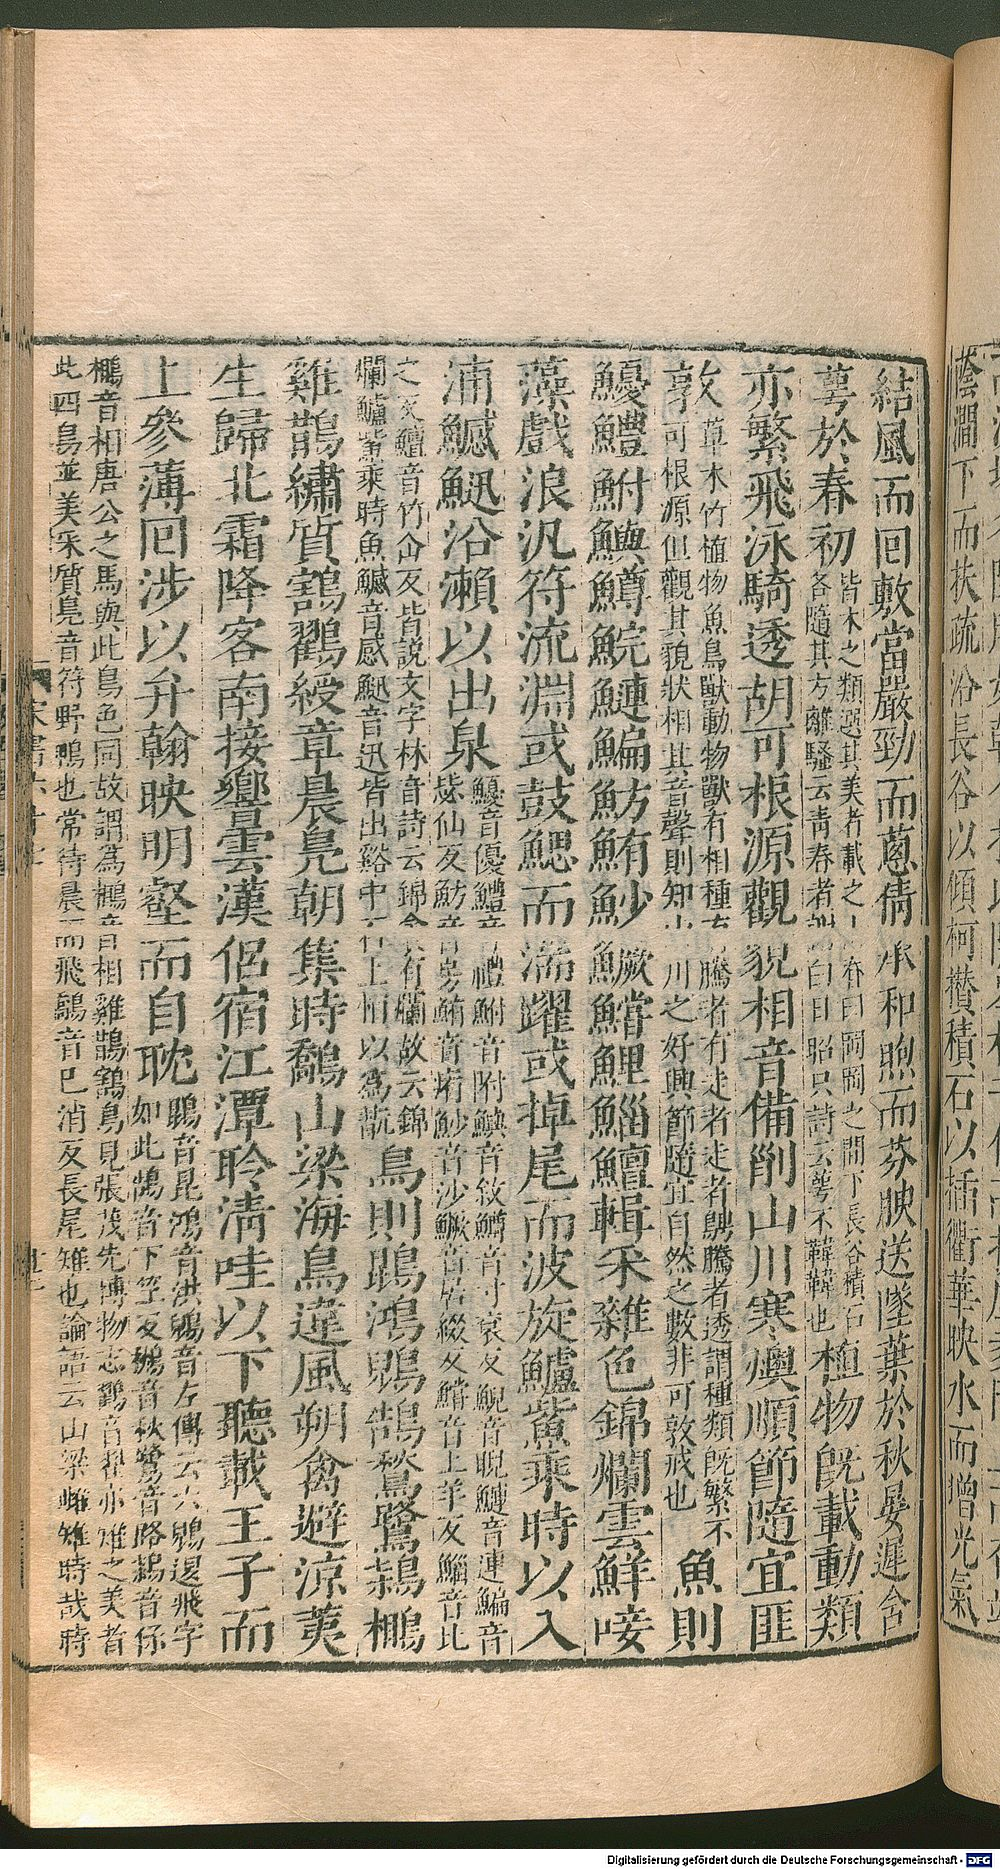 蔭澗下而扶疏沿長谷以傾柯攢積石以插衢華映水而增光氣
結風而回敷當嚴勁而蔥倩承和煦而芬腴送墜葉於秋晏遲含
萼於春初
皆木之類選其美者載之山脊曰岡岡之間下長谷積石
各隨其方離騷云青春者謝白日昭只詩云萼不韡韡也
植物既載動類
亦繁飛泳騎透胡可根源觀貌相音備削山川寒燠順節隨宜匪
敦
草木竹植物魚鳥獸動物獸有相種有騰者有走者走者騁騰者透謂種類既繁不
可根源但觀其貌狀相其音聲則知山川之好興節隨宜自然之數非可敦戒也
魚則
鱧鮒鱮鱒鯇鰱鯿魴鮪魦鱖鱨鯉鯔鱣輯采雜色錦爛雲鮮唼
藻戲浪汎符流淵或鼓鰓而湍躍或掉尾而波旋鱸鮆乘時以入
浦鱤沿瀨以出泉
音優鱧音禮鮒音附鱮音敘鱒音寸袞反鯇音睆鰱音連鯿音
毖仙反魴音房鮪音痏魦音沙鱖音居綴反鱨音上羊反鯔音比
之反鱣音竹仚反皆說文字林音詩云錦衾有爛故云錦
爛鱸鮆乘時魚鱤音感音迅皆出谿中石上恒以為翫
鳥則鵾鴻鶂鵠鶖鷺鴇䳓
雞鵲繡質鶷鸛綬章晨鳧朝集時鷮山梁海鳥違風朔禽避涼荑
生歸北霜降客南接響雲漢侶宿江潭聆清哇以下聽載王子而
上參薄回涉以弁翰映明壑而自耽
鵾音昆鴻音洪鶂音左傳云六鶂退飛字
如此鵠音下竺反鶖音秋鷺音路鴇音保
䳓音相唐公之馬與此鳥色同故謂為䳓音相雞鵲鶷鳥見張茂先博物志鸛音翟亦雉之美者
此四鳥並美采質鳧音符野鴨也常待晨而飛鷮音已消反長尾雉也論語云山梁雌雉時哉時
Digitalisierung gefördert durch die Deutsche Forschungsgemeinschaft - DFG